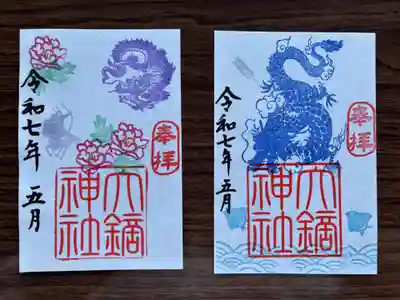 奉拝
大鏑
神社
令和七年 五月
奉拝
大鏑
神社
令和七年五月